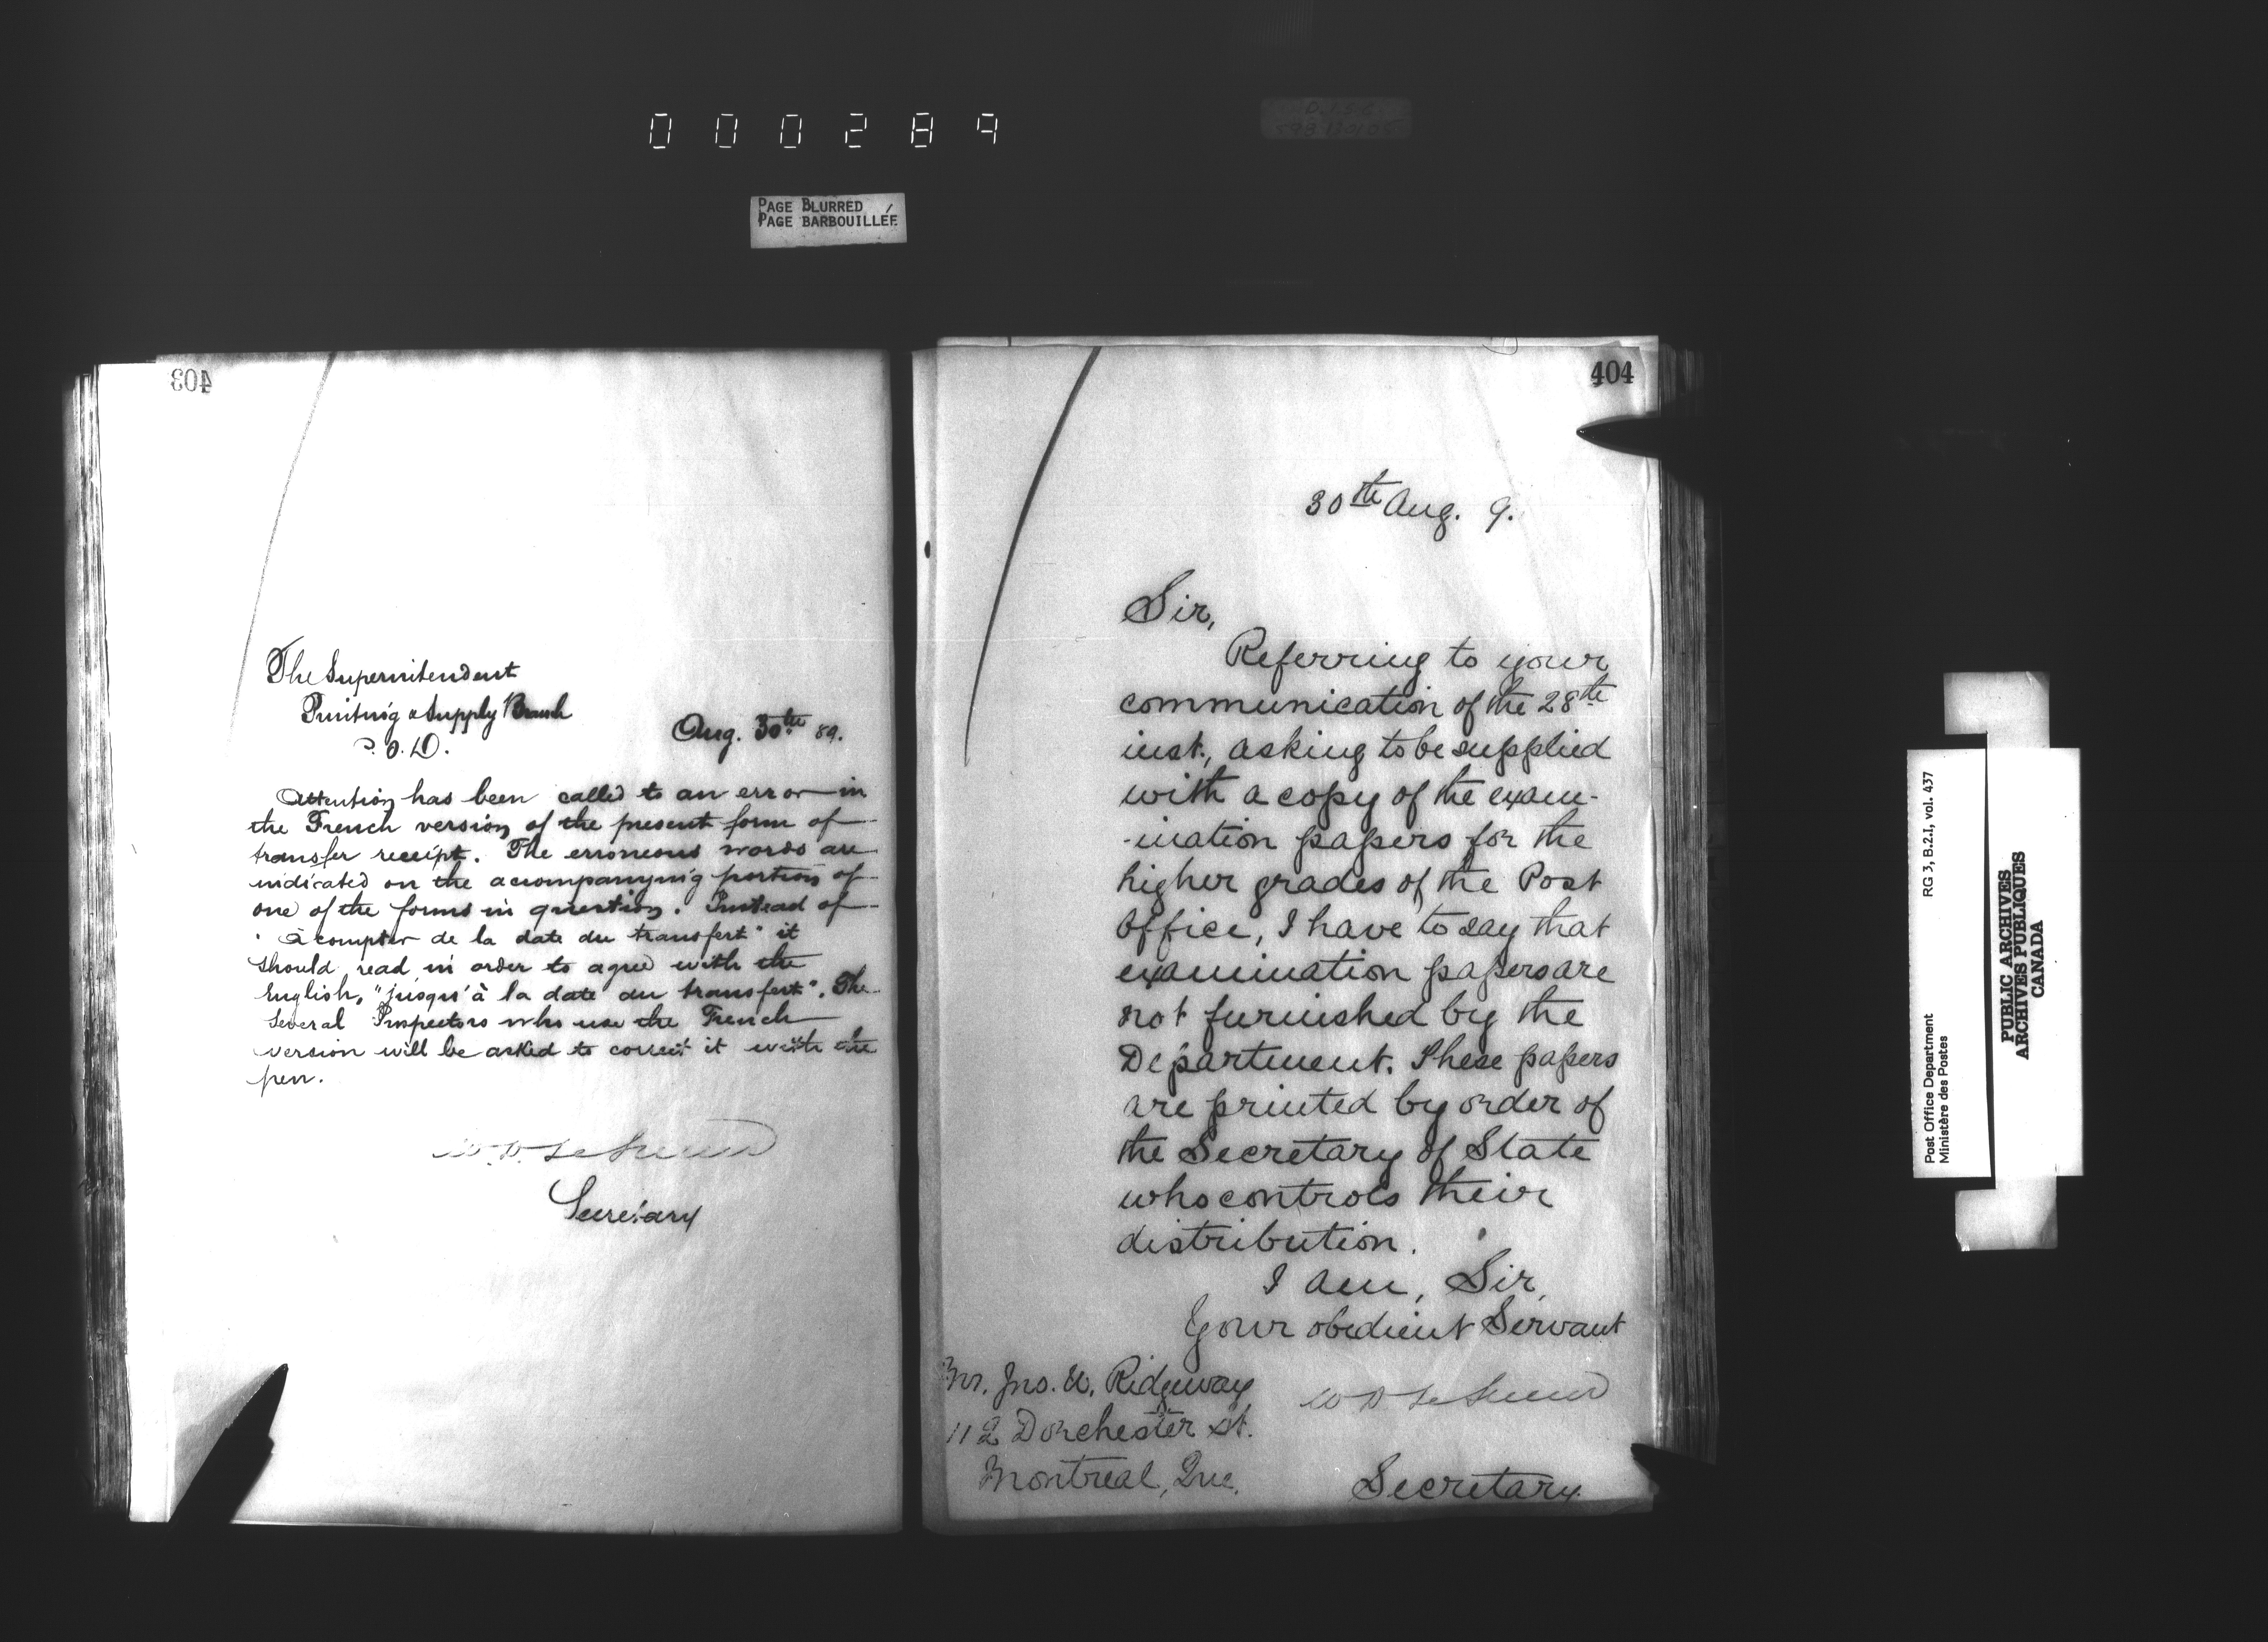 000289
PAGE BLURRED
PAGE BARBOUILLÉE
403
The Superintendent
Printing & Supply Branch
P.O.D.
Aug. 30th 89.
Attention has been called to an error in
the French version of the present form of
transfer receipt. The erroneous words are
indicated on the accompanying portion of
one of the forms in question. Instead of
"à compter de la date du transfert" it
should read in order to agree with the
English, "jusqu'à la date du transfert". The
several Inspectors who use the French
version will be asked to correct it with the
pen.
Secretary
404
30th Aug. 9.
Sir,
Referring to your
communication of the 28th
inst., asking to be supplied
with a copy of the exam-
-ination papers for the
higher grades of the Post
Office, I have to say that
examination papers are
not furnished by the
Department. These papers
are printed by order of
the Secretary of State
who controls their
distribution.
I am, Sir,
Your obedient Servant
Mr. Jno. W. Ridgeway
112 Dorchester St.
Montreal, Que.
Secretary.
Post Office Department
Ministère des Postes
RG 3, B.2.I, vol. 437
PUBLIC ARCHIVES
ARCHIVES PUBLIQUES
CANADA